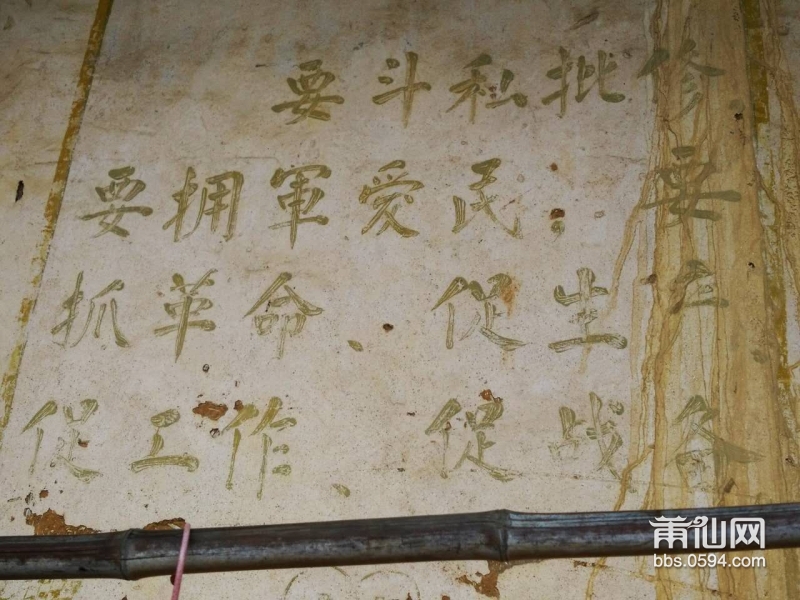 要斗私批修
要拥軍爱民；要
抓革命、促生产
促工作、促战备
莆仙网
bbs.0594.com